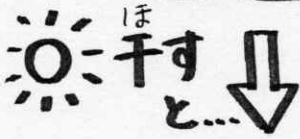 ほ
干すと…